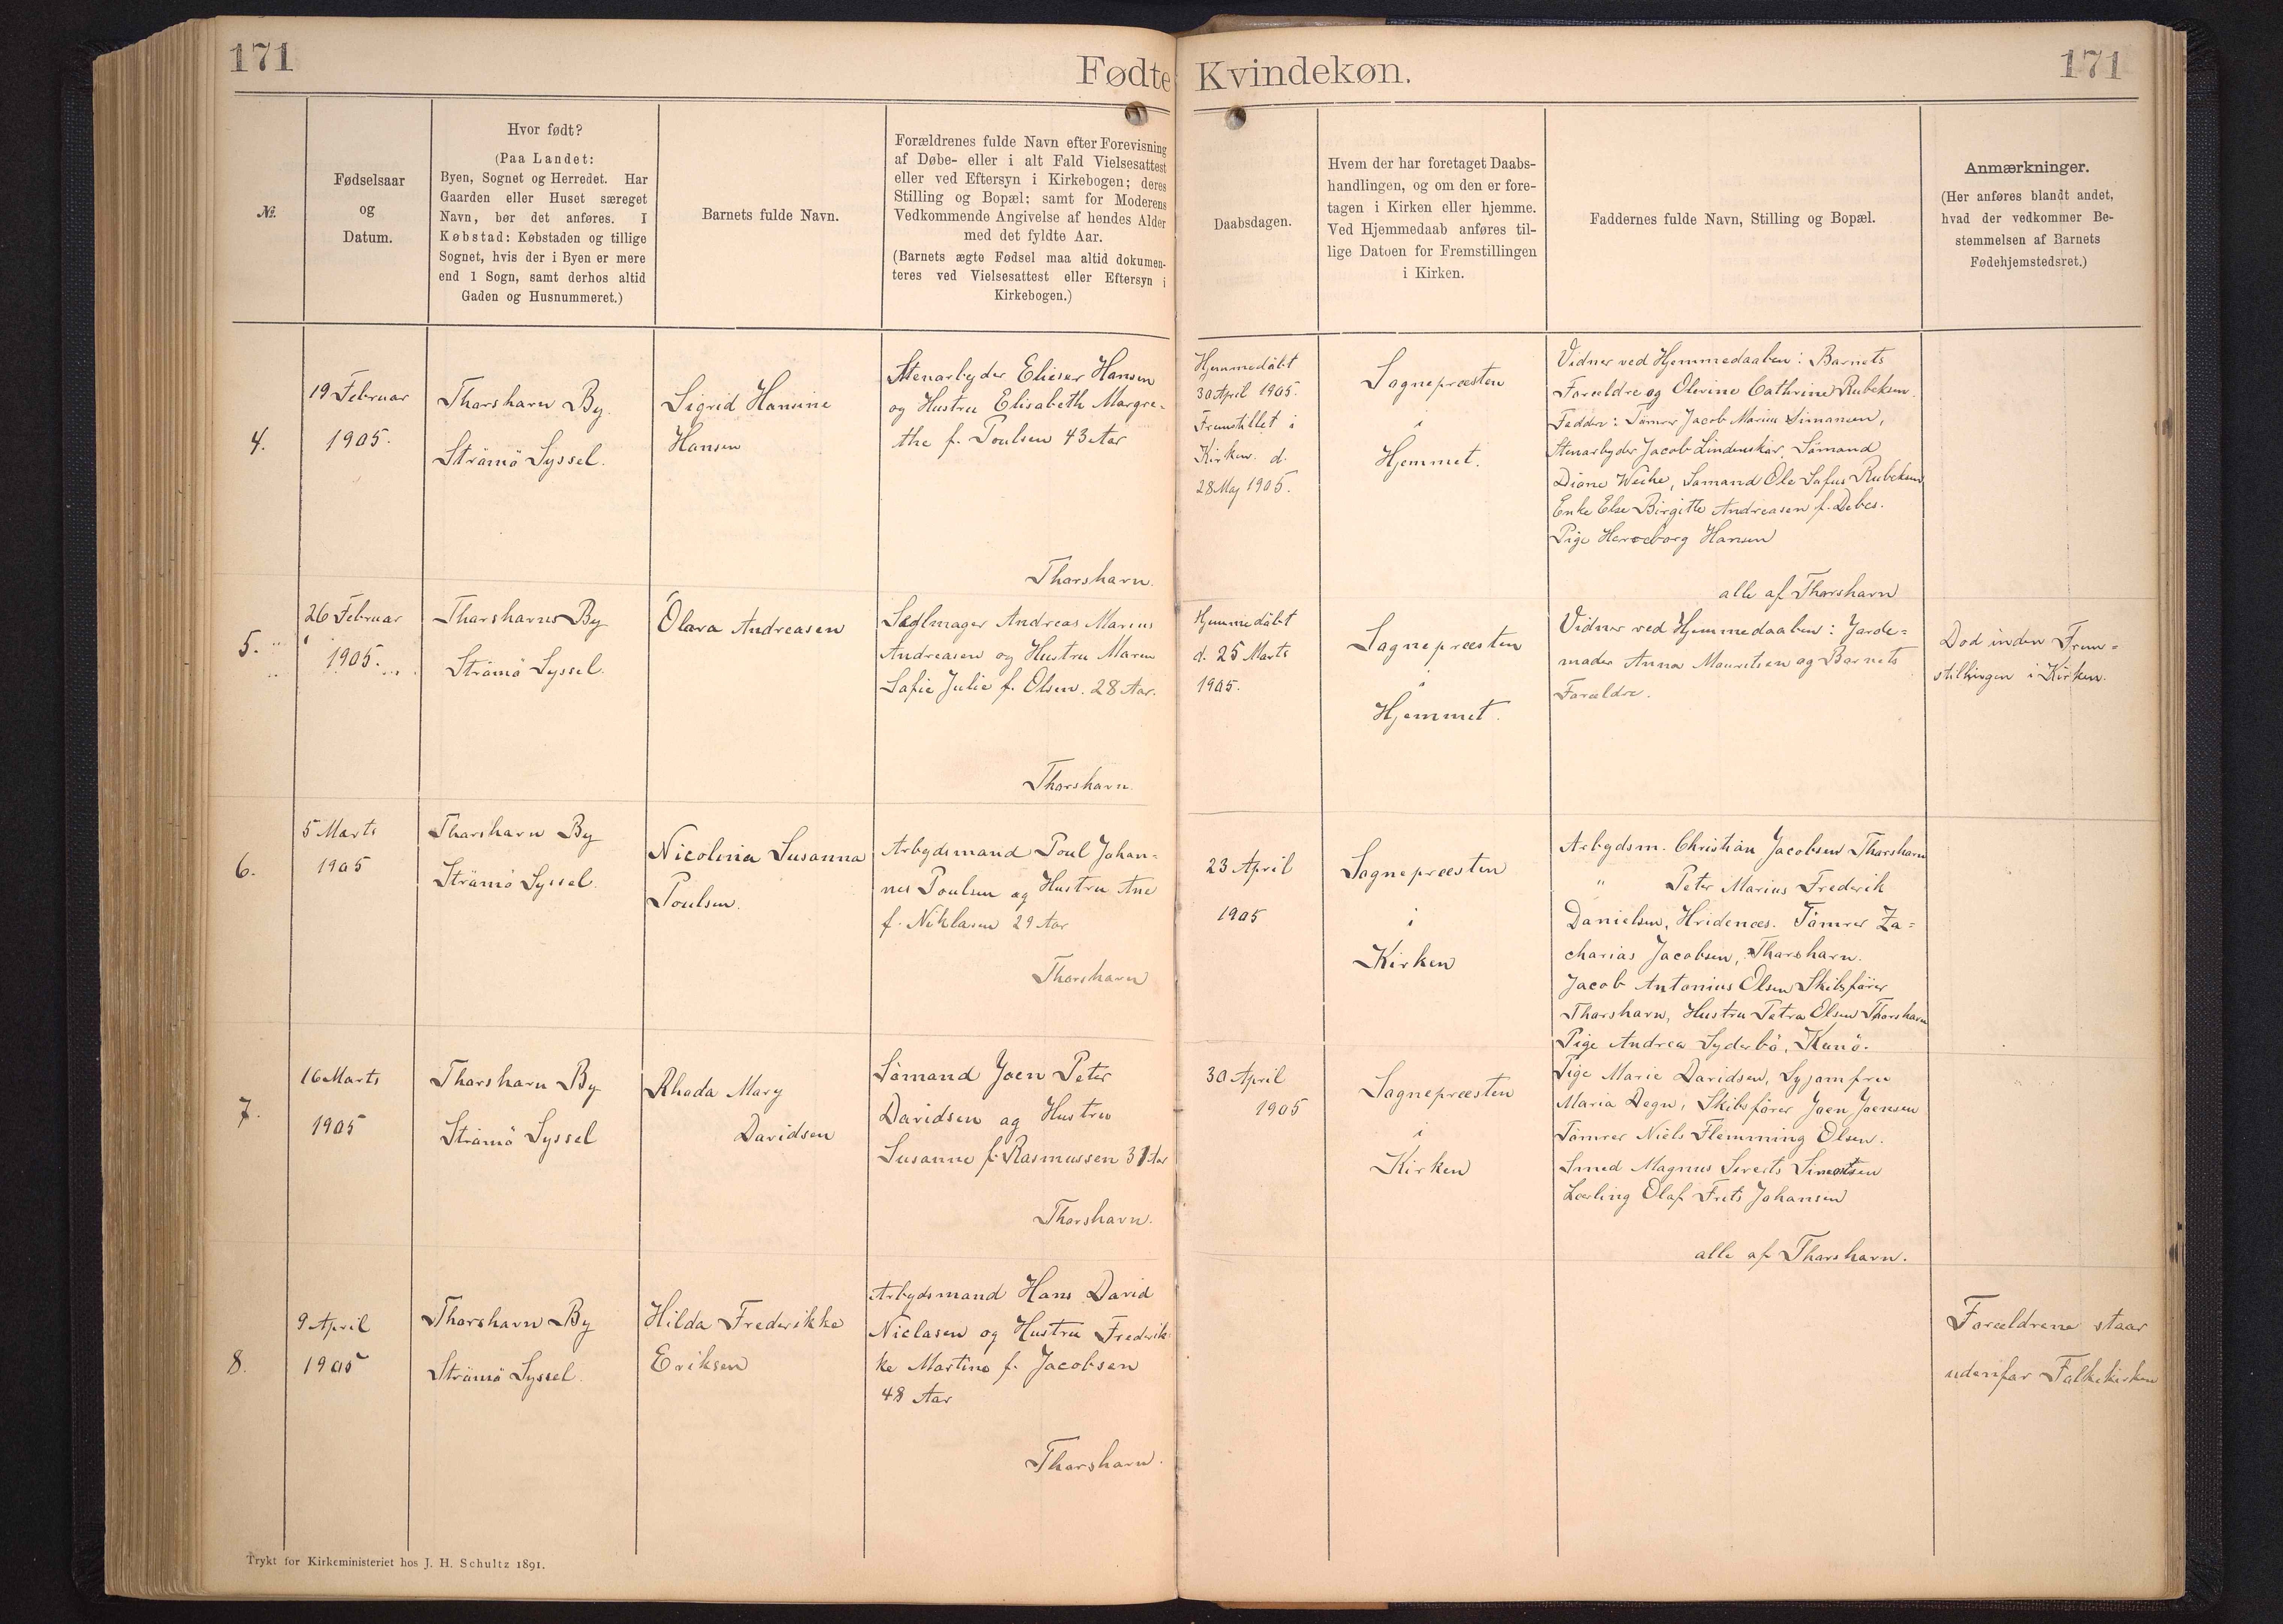 171
Fødte Kvindekøn.
171
№.
Fødselsaar
og
Datum.
Hvor født?
(Paa Landet:
Byen, Sognet og Herredet. Har
Gaarden eller Huset særeget
Navn, bør det anføres. I
Købstad: Købstaden og tillige
Sognet, hvis der i Byen er mere
end 1 Sogn, samt derhos altid
Gaden og Husnummeret.)
Barnets fulde Navn.
Forældrenes fulde Navn efter Forevisning
af Døbe- eller i alt Fald Vielsesattest
eller ved Eftersyn i Kirkebogen; deres
Stilling og Bopæl; samt for Moderens
Vedkommende Angivelse af hendes Alder
med det fyldte Aar.
(Barnets ægte Fødsel maa altid dokumen-
teres ved Vielsesattest eller Eftersyn i
Kirkebogen.)
Daabsdagen.
Hvem der har foretaget Daabs-
handlingen, og om den er fore-
tagen i Kirken eller hjemme.
Ved Hjemmedaab anføres til-
lige Datoen for Fremstillingen
i Kirken.
Faddernes fulde Navn, Stilling og Bopæl.
Anmærkninger.
(Her anføres blandt andet,
hvad der vedkommer Be-
stemmelsen af Barnets
Fødehjemstedsret.)
4.
19 Februar
1905.
Thorshavn By
Strömö Syssel.
Sigrid Hansine
Hansen
Stenarbejder Elieser Hansen
og Hustru Elisabeth Margre-
the f. Poulsen 43 Aar
Thorshavn.
Hjemmedöbt
30 April 1905.
Fremstillet i
Kirken d.
28 Maj 1905.
Sognepræsten
i
Hjemmet.
Vidner ved Hjemmedaaben: Barnets
Forældre og Olevine Cathrine Rubeksen.
Fadder: Tömrer Jacob Marius Simonsen,
Stenarbejder Jacob Lindenskov, Sömand
Dione Weihe, Sömand Ole Sofus Rubeksen
Enke Else Birgitte Andreasen f. Debes.
Pige Herborg Hansen
alle af Thorshavn
5.
26 Februar
1905.
Thorshavns By
Strömö Syssel.
Olava Andreasen
Sejlmager Andreas Marius
Andreasen og Hustru Maren
Sofie Julie f. Olsen. 28 Aar.
Thorshavn.
Hjemmedöbt
d. 25 Marts
1905.
Sognepræsten
i
Hjemmet.
Vidner ved Hjemmedaaben: Jorde-
moder Anna Mouritsen og Barnets
Forældre.
Död inden Frem-
stillingen i Kirken.
6.
5 Marts
1905
Thorshavn By
Strömö Syssel.
Nicolina Susanna
Poulsen.
Arbejdsmand Poul Johan-
nes Poulsen og Hustru Ane
f. Niklasen 29 Aar
Thorshavn
23 April
1905
Sognepræsten
i
Kirken
Arbejdsm. Christian Jacobsen Thorshavn
" Peter Marius Frederik
Danielsen, Hvidenæs. Tömrer Za-
charias Jacobsen, Thorshavn.
Jacob Antonius Olsen Skibsförer
Thorshavn, Hustru Petra Olsen Thorshavn
Pige Andrea Syderbö, Kunö.
7.
16 Marts
1905
Thorshavn By
Strömö Syssel
Rhoda Mary
Davidsen
Sömand Joen Peter
Davidsen og Hustru
Susanne f. Rasmussen 31 Aar
Thorshavn.
30 April
1905
Sognepræsten
i
Kirken
Pige Marie Davidsen, Syjomfru
Maria Degn, Skibsförer Joen Joensen
Tömrer Niels Flemming Olsen.
Smed Magnus Siverts
Lærling Olaf Frits Johansen
alle af Thorshavn.
8.
9 April
1905
Thorshavn By
Strömö Syssel.
Hilda Frederikke
Eriksen
Arbejdsmand Hans David
Niclasen og Hustru Frederik-
ke Martine f. Jacobsen
48 Aar
Thorshavn.
Forældrene staar
udenfor Folkekirken
Trykt for Kirkeministeriet hos J. H. Schultz 1891.